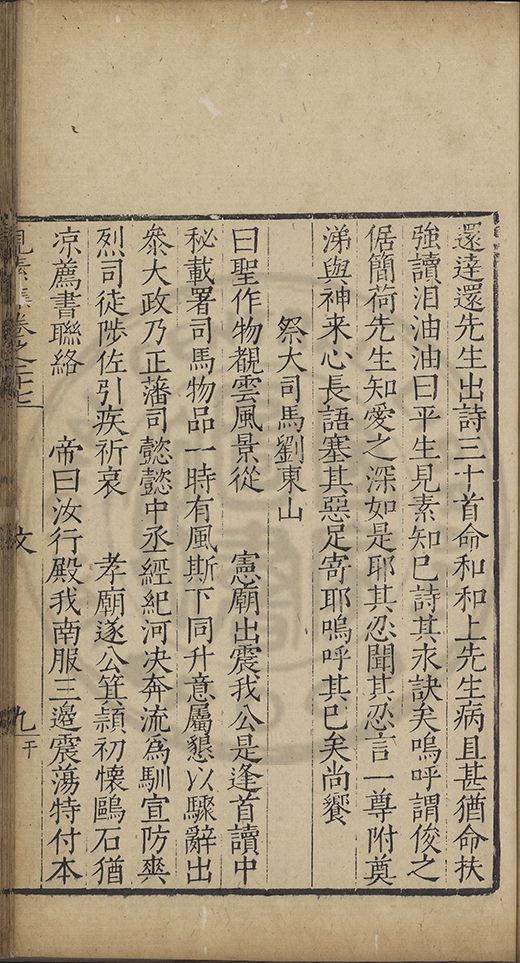 還逹還先生出詩三十首命和和上先生病且甚猶命扶
強讀泪油油曰平生見素知巳詩其永訣矣嗚呼謂俊之
倨簡荷先生知愛之深如是耶其忍聞其忍言一尊附奠
涕與神来心長語塞其惡足寄耶嗚呼其巳矣尚饗
祭大司馬劉東山
曰聖作物覩雲風景從 憲廟出震我公是逢首讀中
秘載署司馬物品一時有風斯下同升意屬懇以驟辭出
叅大政乃正藩司懿懿中丞經紀河决奔流為馴宣防奭
烈司徒陟佐引疾祈哀 孝廟遂公箕頴初懷鷗石猶
凉薦書聯絡 帝曰汝行殿我南服三邉震荡特付本
見素集卷之二十七 文 九